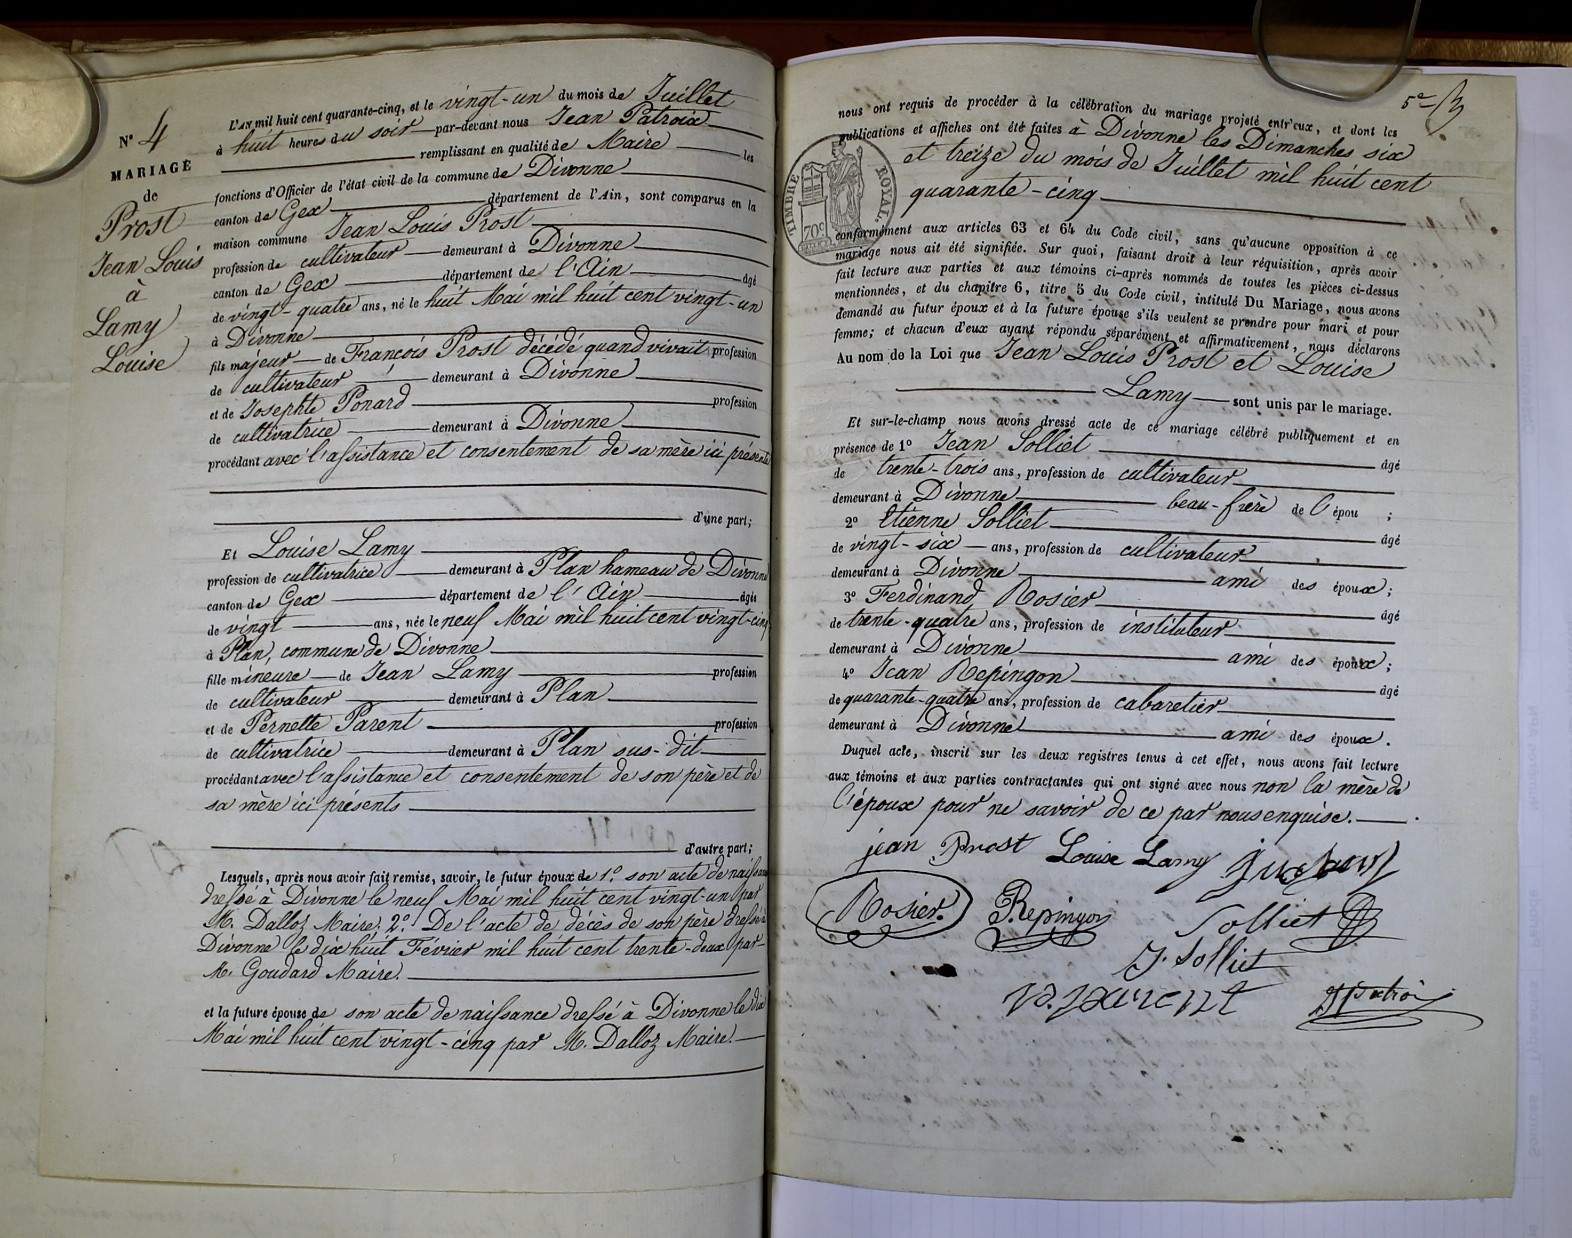 N° 4
MARIAGE
de
Prost
Jean Louis
à
Lamy
Louise
L'AN mil huit cent quarante-cinq, et le vingt-un du mois de Juillet
à huit heures du soir par-devant nous Jean Patroix
remplissant en qualité de Maire les
fonctions d'Officier de l'état civil de la commune de Divonne
canton de Gex département de l'Ain, sont comparus en la
maison commune Jean Louis Prost
profession de cultivateur demeurant à Divonne
canton de Gex département de l'Ain âgé
de vingt-quatre ans, né le huit Mai mil huit cent vingt-un
à Divonne
fils majeur de François Prost décédé quand vivait profession
de cultivateur demeurant à Divonne
et de Josephte Ponard profession
de cultivatrice demeurant à Divonne
procédant avec l'assistance et consentement de sa mère ici présente
d'une part;
Et Louise Lamy
profession de cultivatrice demeurant à Plan hameau de Divonne
canton de Gex département de l'Ain âgée
de vingt ans, née le neuf Mai mil huit cent vingt-cinq
à Plan, commune de Divonne
fille mineure de Jean Lamy profession
de cultivateur demeurant à Plan
et de Pernette Parent profession
de cultivatrice demeurant à Plan sus-dit
procédant avec l'assistance et consentement de son père et de
sa mère ici présents
d'autre part;
Lesquels, après nous avoir fait remise, savoir, le futur époux de 1° son acte de naissance
dressé à Divonne le neuf Mai mil huit cent vingt-un par
M. Dalloz Maire, 2° De l'acte de décès de son père dressé à
Divonne le dix huit Fevrier mil huit cent trente-deux par
M. Goudard Maire.
et la future épouse de son acte de naissance dressé à Divonne le dix
Mai mil huit cent vingt-cinq par M. Dalloz Maire.
5e
nous ont requis de procéder à la célébration du mariage projeté entr'eux, et dont les
publications et affiches ont été faites à Divonne les Dimanches six
et treize du mois de Juillet mil huit cent
quarante-cinq
TIMBRE ROYAL.
70c
conformément aux articles 63 et 64 du Code civil, sans qu'aucune opposition à ce
mariage nous ait été signifiée. Sur quoi, faisant droit à leur réquisition, après avoir
fait lecture aux parties et aux témoins ci-après nommés de toutes les pièces ci-dessus
mentionnées, et du chapitre 6, titre 5 du Code civil, intitulé Du Mariage, nous avons
demandé au futur époux et à la future épouse s'ils veulent se prendre pour mari et pour
femme; et chacun d'eux ayant répondu séparément et affirmativement, nous déclarons
Au nom de la Loi que Jean Louis Prost et Louise
Lamy sont unis par le mariage.
Et sur-le-champ nous avons dressé acte de ce mariage célébré publiquement et en
présence de 1° Jean Solliet âgé
de trente-trois ans, profession de cultivateur
demeurant à Divonne beau-frère de l'épou ;
2° Etienne Solliet âgé
de vingt-six ans, profession de cultivateur
demeurant à Divonne ami des époux;
3° Ferdinand Rosier âgé
de trente-quatre ans, profession de instituteur
demeurant à Divonne ami des époux;
4° Jean Repingon âgé
de quarante-quatre ans, profession de cabaretier
demeurant à Divonne ami des époux.
Duquel acte, inscrit sur les deux registres tenus à cet effet, nous avons fait lecture
aux témoins et aux parties contractantes qui ont signé avec nous non la mère de
l'époux pour ne savoir de ce par nous enquise.
jean Prost Louise Lamy
Rosier. Repingon Solliet
J. Solliet
P. parent JPatroix